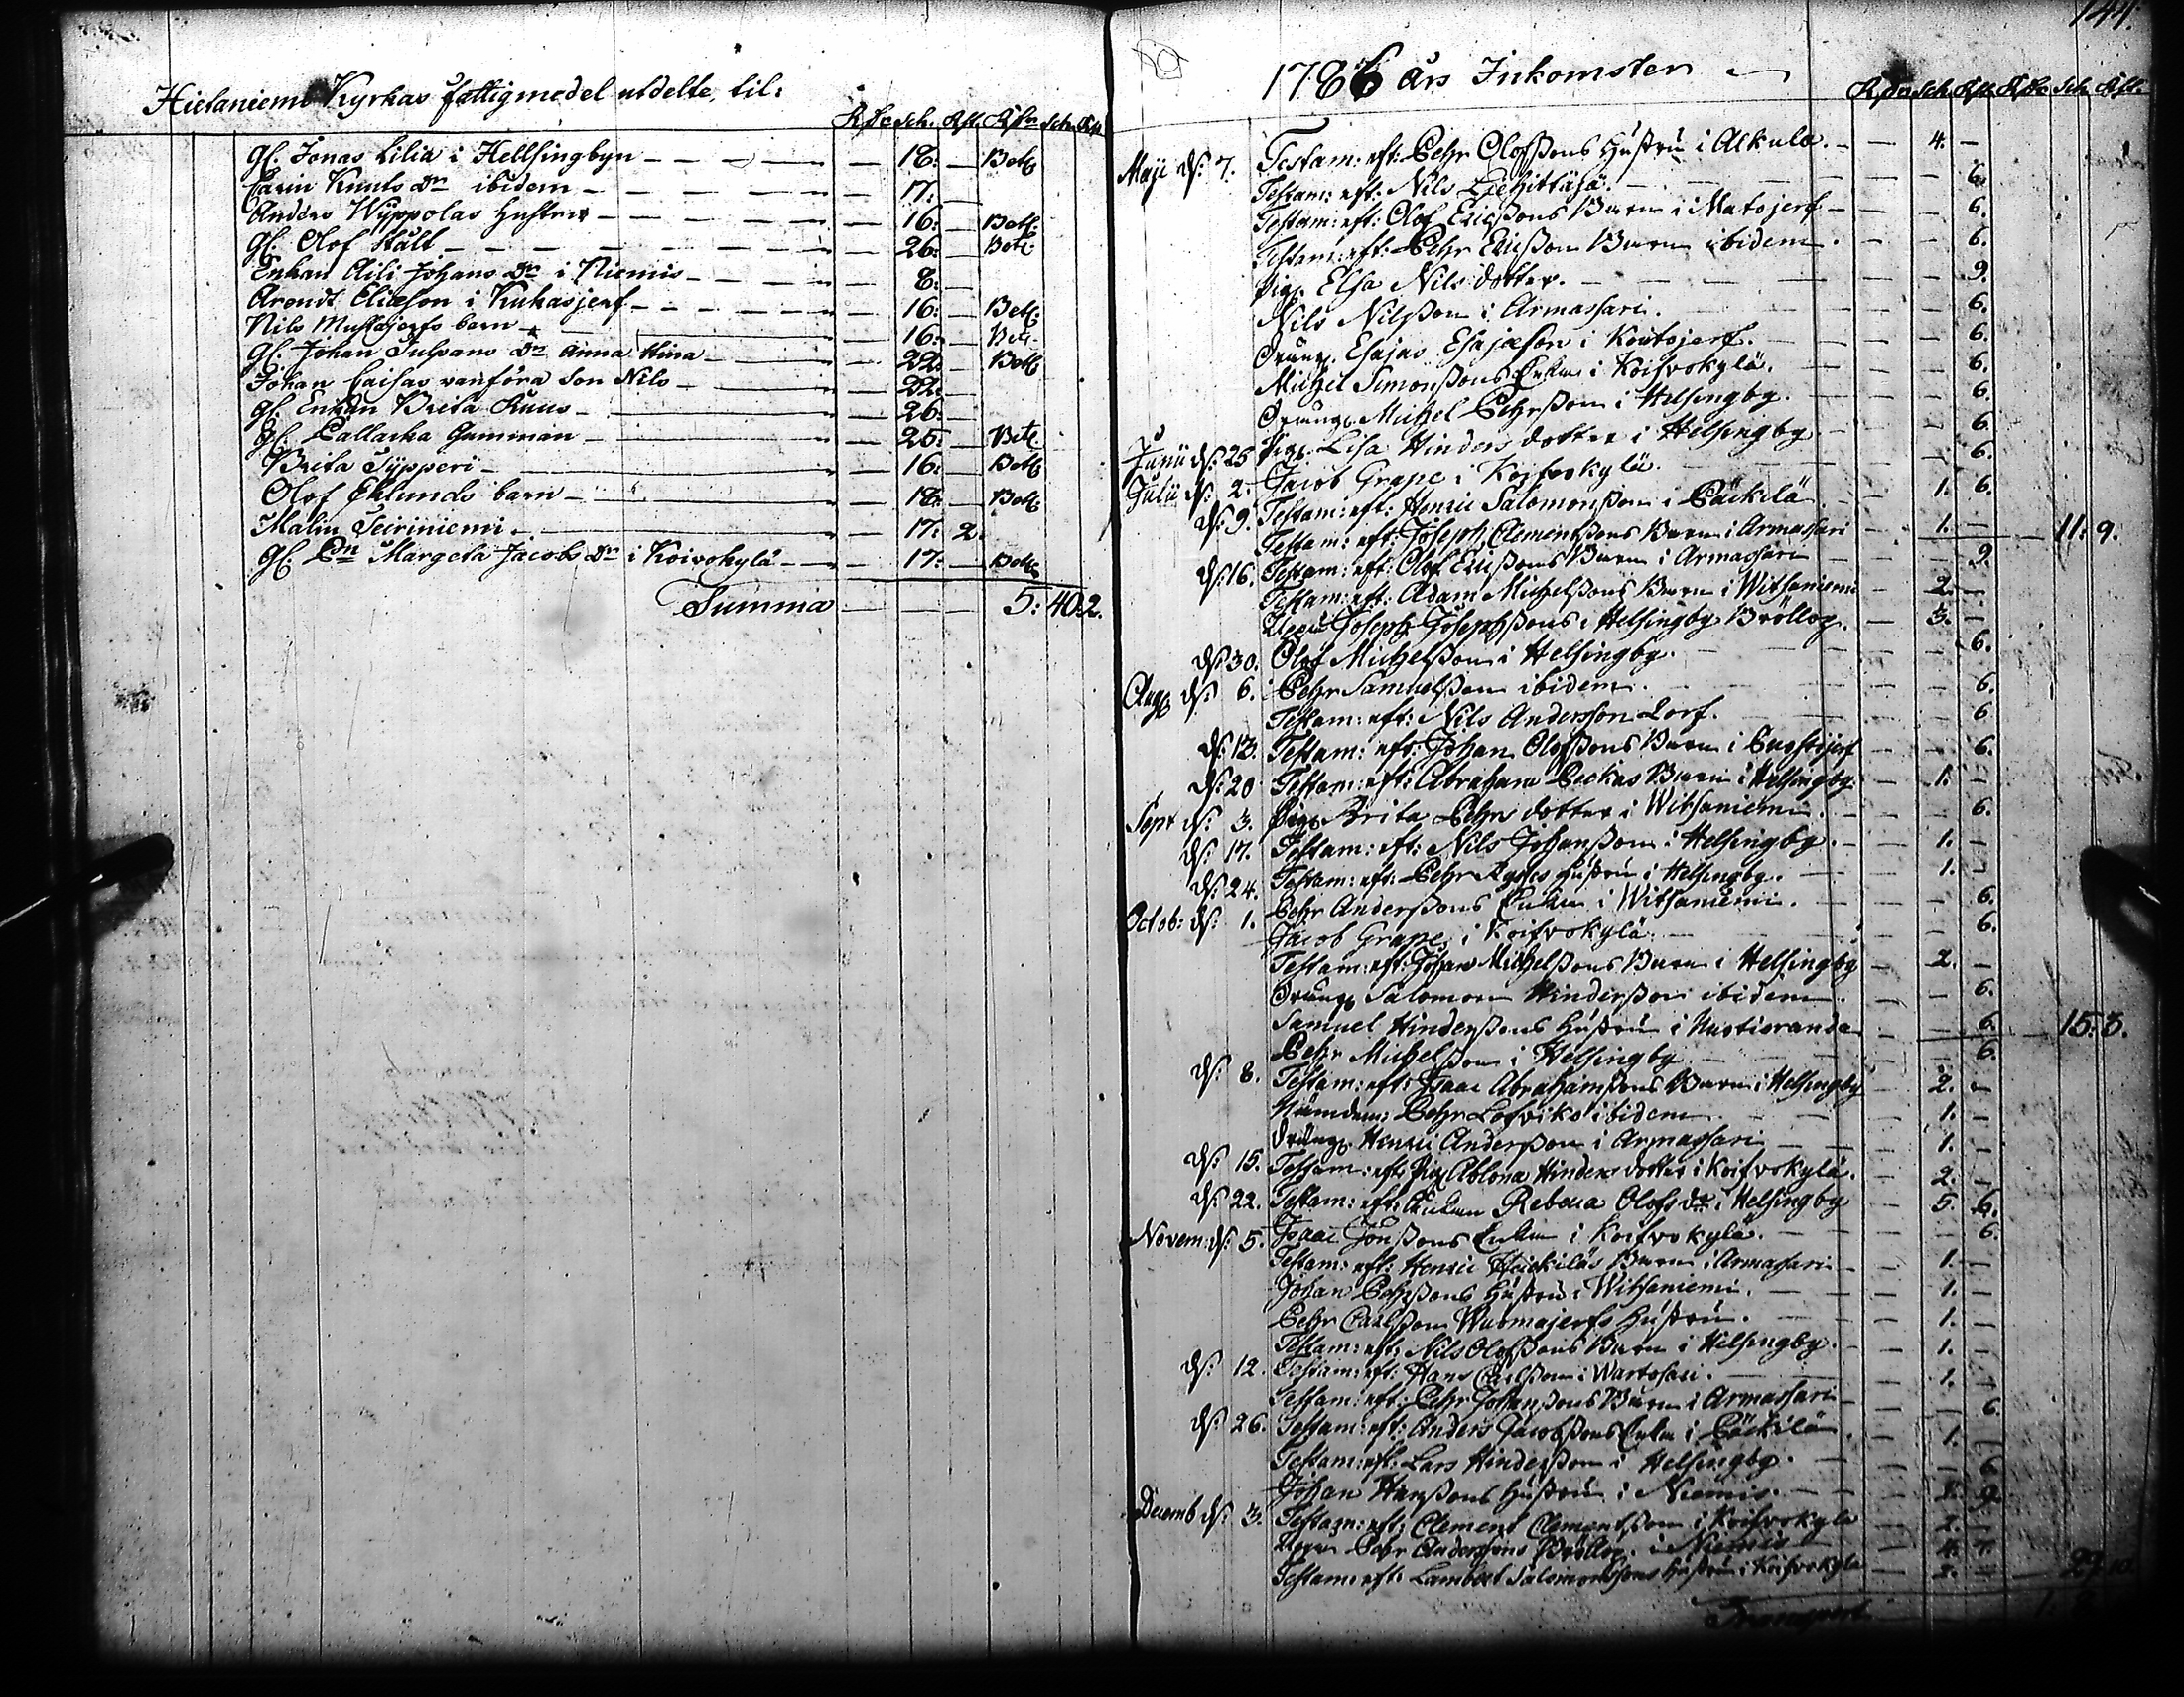 Hietaniemi Kyrkas fattigmedel utdelte, til:
R:dr Sch. Rst. R:dr Sch. Rst.
gl. Jonas Lilia i Hellsingbyn — 18: — Bet:
Carin Knuts Dr ibidem — 17: —
Anders Wyppolas hustru — 16: — Bet:
gl. Olof Stålt — 26: — Bet:
Enkan Aili Johans Dr i Niemis — 8: —
Arendt Eliæson i Kuhasjerf — 16: — Bet:
Nils Mustajerfs barn — 16: — Bet:
gl. Johan Dr Anna Stina — 22: — Bet:
Johan Caisas vanföra Son Nils — 22: —
gl. Enkan Brita Kuus — 26: —
gl. Pallarka Gumman — 25: — Bet:
Brita Typperi — 16: — Bet:
Olof Eklunds barn — 18: — Bet:
Malin Teiriniemi — 17: 2.
gl. Margeta Jacobs Dr i Koivokylä — 17: — Bet:
Summa — 5: 40: 2.
141.
1786 års Inkomster
R:dr Sch. Rst. R:dr Sch. Rst.
Maji d: 7. Testam: eft: Pehr Olofssons hustru i Alkula. — 4. —
Testam: eft. Nils — 6.
Testam: eft: Olof Ericssons Barn i Matojerf — 6.
Testam: eft: Pehr Ericsson Barn ibidem. — 6.
Pig. Elsa Nils dotter. — 9.
Nils Nilsson i Armassari. — 6.
Dräng. Esajas Esajæson i Koutojerf. — 6.
Michel Simonssons Enka i Koifvokylä. — 6.
Dräng. Michel Pehrsson i Helsingby. — 6.
Junii d: 25 Pig. Lisa Hinders dotter i Helsingby — 6.
Julii d: 2. Jacob Grape i Koifvokylä. — 6.
d: 9. Testam: eft: Henric Salomonsson i Päckilä — 1. 6.
Testam: eft: Joseph Clementssons Barn i Armassari — 1. — 11: 9.
d: 16. Testam: eft: Olof Ericssons Barn i Armassari — 9.
Testam: eft: Adam Michelssons Barn i Witsaniemi — 2. —
Joseph Josephssons i Helsingby Bröllop. — 3. —
d: 30. Olof Michelsson i Helsingby. — 6.
Aug. d: 6. Pehr Samuelsson ibidem. — 6.
Testam: eft: Nils Andersson Lorf. — 6.
d: 13. Testam: eft: Johan Olofssons Barn i — 6.
d: 20 Testam: eft: Abraham Peckas Barn i Helsingby — 1. —
Sept d: 3. Pig. Brita Pehrs dotter i Witsaniemi. — 6.
d: 17. Testam: eft: Nils Johansson i Helsingby. — 1. —
d: 24. Testam: eft: Pehr hustru i Helsingby. — 1. —
Octob: d: 1. Pehr Anderssons Enka i Witsaniemi. — 6.
Jacob Grape i Koifvokylä. — 6.
Testam: eft: Johan Michelssons Barn i Helsingby — 2. —
Dräng. Salomon Hindersson ibidem. — 6.
Samuel Hinderssons hustru i — 6. — 15: 3.
Pehr Michelsson i Helsingby — 6.
d: 8. Testam: eft: Isaac Abrahamssons Barn i Helsingby — 2. —
Nämdem: Pehr Lofviks ibidem — 1. —
Dräng. Henric Andersson i Armassari — 1. —
d: 15. Testam: eft: Pig. Ablona Hinders dotter i Koifvokylä. — 2. —
d: 22. Testam: eft: Enkan Rebecca Olofs dr i Helsingby — 5. 6.
Novem: d: 5. Isaac Jonssons Enka i Koifvokylä. — 6.
Testam: eft: Henric Heickiläs Barn i Armassari — 1. —
Johan Pehrssons hustru i Witsaniemi. — 1. —
Pehr Carlsson Warmajerfs hustru. — 1. —
Testam: eft: Nils Olofssons Barn i Helsingby. — 1. —
d: 12. Testam: eft: Hans Carlsson i Wartosari. — 1. —
Testam: eft: Pehr Johanssons Barn i Armassari — 6.
d: 26. Testam: eft: Anders Jacobssons Enka i Päckilä. — 1. —
Testam: eft: Lars Hindersson i Helsingby. — 6.
Johan Hanssons hustru i Niemis. — 9.
Decemb d: 3. Testam: eft: Clement Clementsson i Koifvokylä — 2. —
Pehr Anderssons Bröllop. i Niemis — 4.
Testam: eft: Lambert Salomonssons hustru i Koifvokylä
Transport